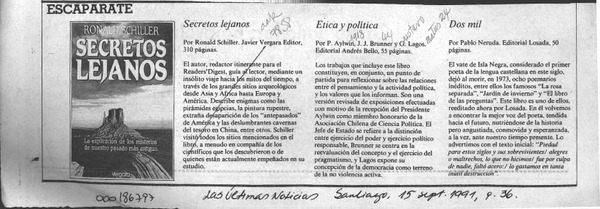 ESCAPARATE
RONALD SCHILLER
SECRETOS
LEJANOS
La explicación de los misterios
de nuestro pasado más antiguo.
Vergara
Secretos lejanos
Por Ronald Schiller. Javier Vergara Editor,
310 páginas.
El autor, redactor itinerante para el
Readers'Digest, guía al lector, mediante un
insólito viaje hacia los mitos del tiempo, a
través de los grandes sitios arqueológicos
desde Asia y Africa hasta Europa y
América. Describe enigmas como las
pirámides egipcias, la pintura rupestre,
extraña desaparición de los "antepasados"
de América y las deslumbrantes cavernas
del tesoro en China, entre otros. Schiller
visitó todos los sitios mencionados en el
libro, a menudo en compañía de los
científicos que los descubrieron o de
quienes están actualmente empeñados en su
estudio.
Etica y política
Por P. Aylwin, J. J. Brunner y G. Lagos,
Editorial Andrés Bello, 55 páginas.
Los trabajos que incluye este libro
constituyen, en conjunto, un punto de
partida para reflexionar sobre las relaciones
entre el pensamiento y la actividad política,
y los valores que las informan. Son una
versión revisada de exposiciones efectuadas
con motivo de la recepción del Presidente
Aylwin como miembro honorario de la
Asociación Chilena de Ciencia Política. El
Jefe de Estado se refiere a la distinción
entre ejercicio del poder y ejercicio político
responsable, Brunner se centra en la
reevaluación del concepto y el ejercicio del
pragmatismo, y Lagos expone su
concepción de la democracia como terreno
de la no violencia activa.
Dos mil
Por Pablo Neruda. Editorial Losada, 50
páginas.
El vate de Isla Negra, considerado el primer
poeta de la lengua castellana en este siglo,
dejó al morir, en 1973, ocho poemarios
inéditos, entre ellos los famosos "La rosa
separada", "Jardín de invierno" y "El libro
de las preguntas". Este libro es uno de ellos,
reeditado ahora por Losada. En él volvemos
a encontrar la mejor voz del poeta, tendida
hacia el futuro, nutriéndose de la historia
pero angustiada, conmovida y esperanzada,
a la vez, ante nuestro tiempo presente. Lo
advertimos con el texto inicial: "Piedad
para estos siglos y sus sobrevivientes/ alegres
o maltrechos, lo que no hicimos/ fue por culpa
de nadie, faltó acero:/ lo gastamos en tanta
inútil destrucción".
000186797
Las Últimas Noticias Santiago, 15 sept. 1991, p. 36.